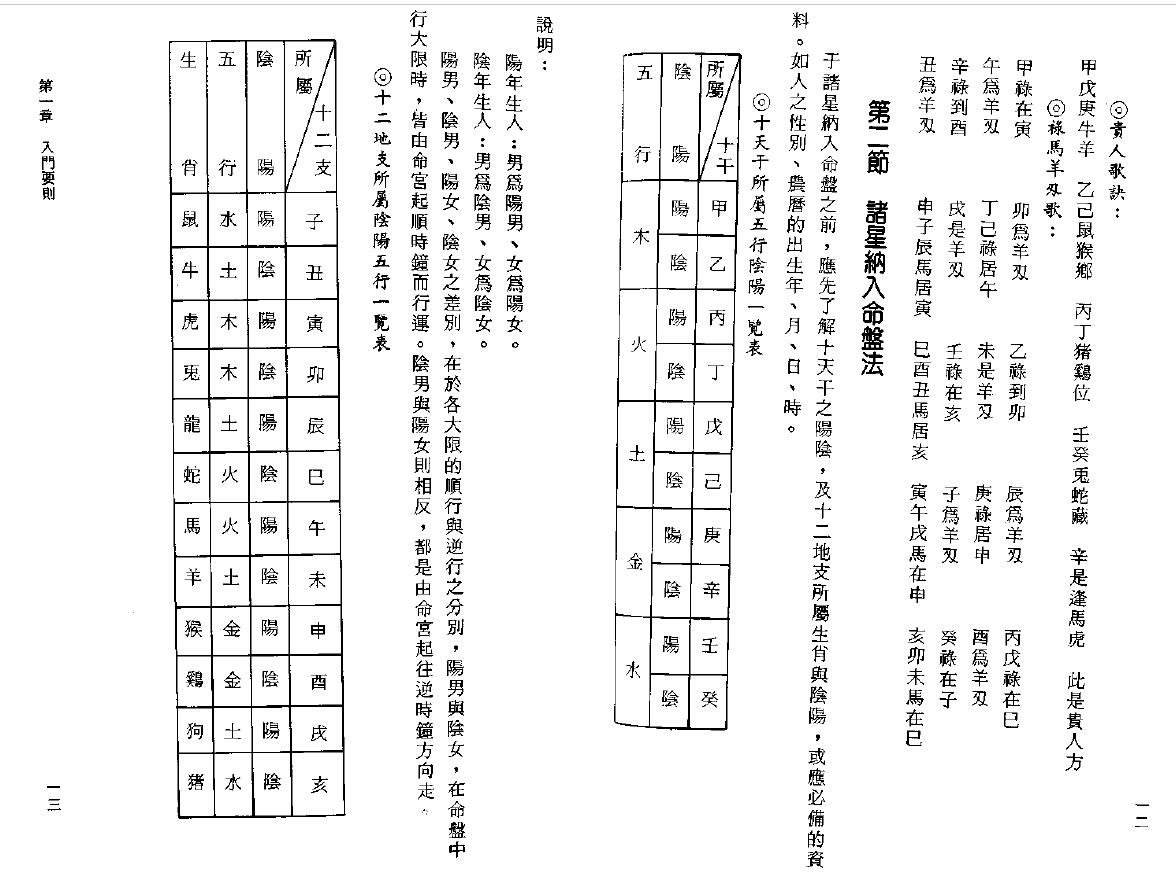 ◎貴人歌訣：
甲戊庚牛羊　乙己鼠猴鄉　丙丁猪鷄位　壬癸兎蛇藏　辛是逢馬虎　此是貴人方
◎祿馬羊刄歌：
甲祿在寅　卯爲羊刄　乙祿到卯　辰爲羊刄　丙戊祿在巳
午爲羊刄　丁己祿居午　未是羊刄　庚祿居申　酉爲羊刄
辛祿到酉　戌是羊刄　壬祿在亥　子爲羊刄　癸祿在子
丑爲羊刄　申子辰馬居寅　巳酉丑馬居亥　寅午戌馬在申　亥卯未馬在巳
第二節　諸星納入命盤法
于諸星納入命盤之前，應先了解十天干之陽陰，及十二地支所屬生肖與陰陽，或應必備的資
料。如人之性別、農曆的出生年、月、日、時。
◎十天干所屬五行陰陽一覽表
所屬　十干　甲　乙　丙　丁　戊　己　庚　辛　壬　癸
陰陽　陽　陰　陽　陰　陽　陰　陽　陰　陽　陰
五行　木　火　土　金　水
一二
說明：
陽年生人：男爲陽男、女爲陽女。
陰年生人：男爲陰男、女爲陰女。
陽男、陰男、陽女、陰女之差別，在於各大限的順行與逆行之分別，陽男與陰女，在命盤中
行大限時，皆由命宮起順時鐘而行運。陰男與陽女則相反，都是由命宮起往逆時鐘方向走。
◎十二地支所屬陰陽五行一覽表
所屬　十二支　子　丑　寅　卯　辰　巳　午　未　申　酉　戌　亥
陰陽　陽　陰　陽　陰　陽　陰　陽　陰　陽　陰　陽　陰
五行　水　土　木　木　土　火　火　土　金　金　土　水
生肖　鼠　牛　虎　兎　龍　蛇　馬　羊　猴　鷄　狗　猪
第一章　入門要則
一三